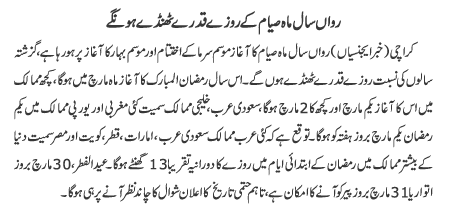 رواں سال ماہ صیام کے روزے قدرے ٹھنڈے ہونگے
کراچی (خبر ایجنسیاں) رواں سال ماہ صیام کا آغاز موسم سرما کے اختتام اور موسم بہار کا آغاز پر ہورہا ہے، گزشتہ
سالوں کی نسبت روزے قدرے ٹھنڈے ہوں گے۔ اس سال رمضان المبارک کا آغاز ماہ مارچ میں ہوگا، کچھ ممالک
میں اس کا آغاز یکم مارچ اور کچھ کا 2 مارچ ہوگا، سعودی عرب، خلیجی ممالک سمیت کئی مغربی اور یورپی ممالک میں یکم
رمضان یکم مارچ بروز ہفتہ کو ہوگا۔ توقع ہے کہ کئی عرب ممالک سعودی عرب، امارات، قطر، کویت اور مصر سمیت دنیا
کے بیشتر ممالک میں رمضان کے ابتدائی ایام میں روزے کا دورانیہ تقریبا 13 گھنٹے ہوگا۔ عیدالفطر، 30 مارچ بروز
اتوار یا 31 مارچ بروز پیر کو آنے کا امکان ہے، تاہم حتمی تاریخ کا اعلان شوال کا چاند نظر آنے پر ہی ہوگا۔